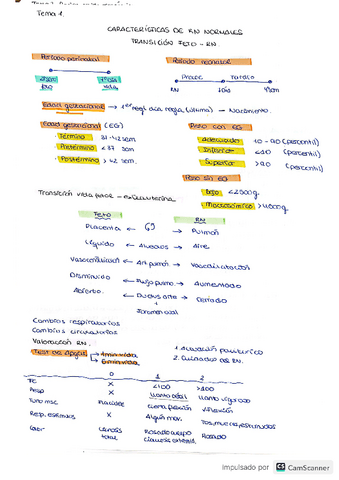 Tema 1.
CARACTERÍSTICAS DE RN NORMALES
TRANSICIÓN FETO - RN.
Periodo perinatal Periodo neonatal
Precoz Tardío
28sem 7º día RN 10d 28d
vida
Edad gestacional → 1er día regla (última) — Nacimiento.
Edad gestacional (EG) Peso con EG
- Término 37-42 sem - Adecuado 10 - 90 (percentil)
- Pretérmino < 37 sem - Inferior <10 (percentil)
- Postérmino > 42 sem. - Superior >90 (percentil)
Peso sin EG
- Bajo <2500g.
- Macrosómico >4000g.
Transición vida fetal - extrauterina
FETO RN
Placenta ← → Pulmón
Líquido ← Alveolos → Aire
Vasoconstricción ← Art pulmon → Vasodilatación
Disminuido ← Flujo pulmo → Aumentado
Abierto. ← Ductus arte → Cerrado
+
Foramen oval
Cambios respiratorios
Cambios circulatorios
Valoración RN. 1. Actuación pediátrico
Test de Apgar → 1 min vida 2. Cuidados del RN.
→ 5 min vida
0 1 2
FC X <100 >100
Resp X llanto débil llanto vigoroso
Tono msc Flacidez cierta flexión
Resp. estímulos X Algún mov. Tos, mueca, estornudos
Color Cianosis Rosado cuerpo Rosado
total
Impulsado por CS CamScanner